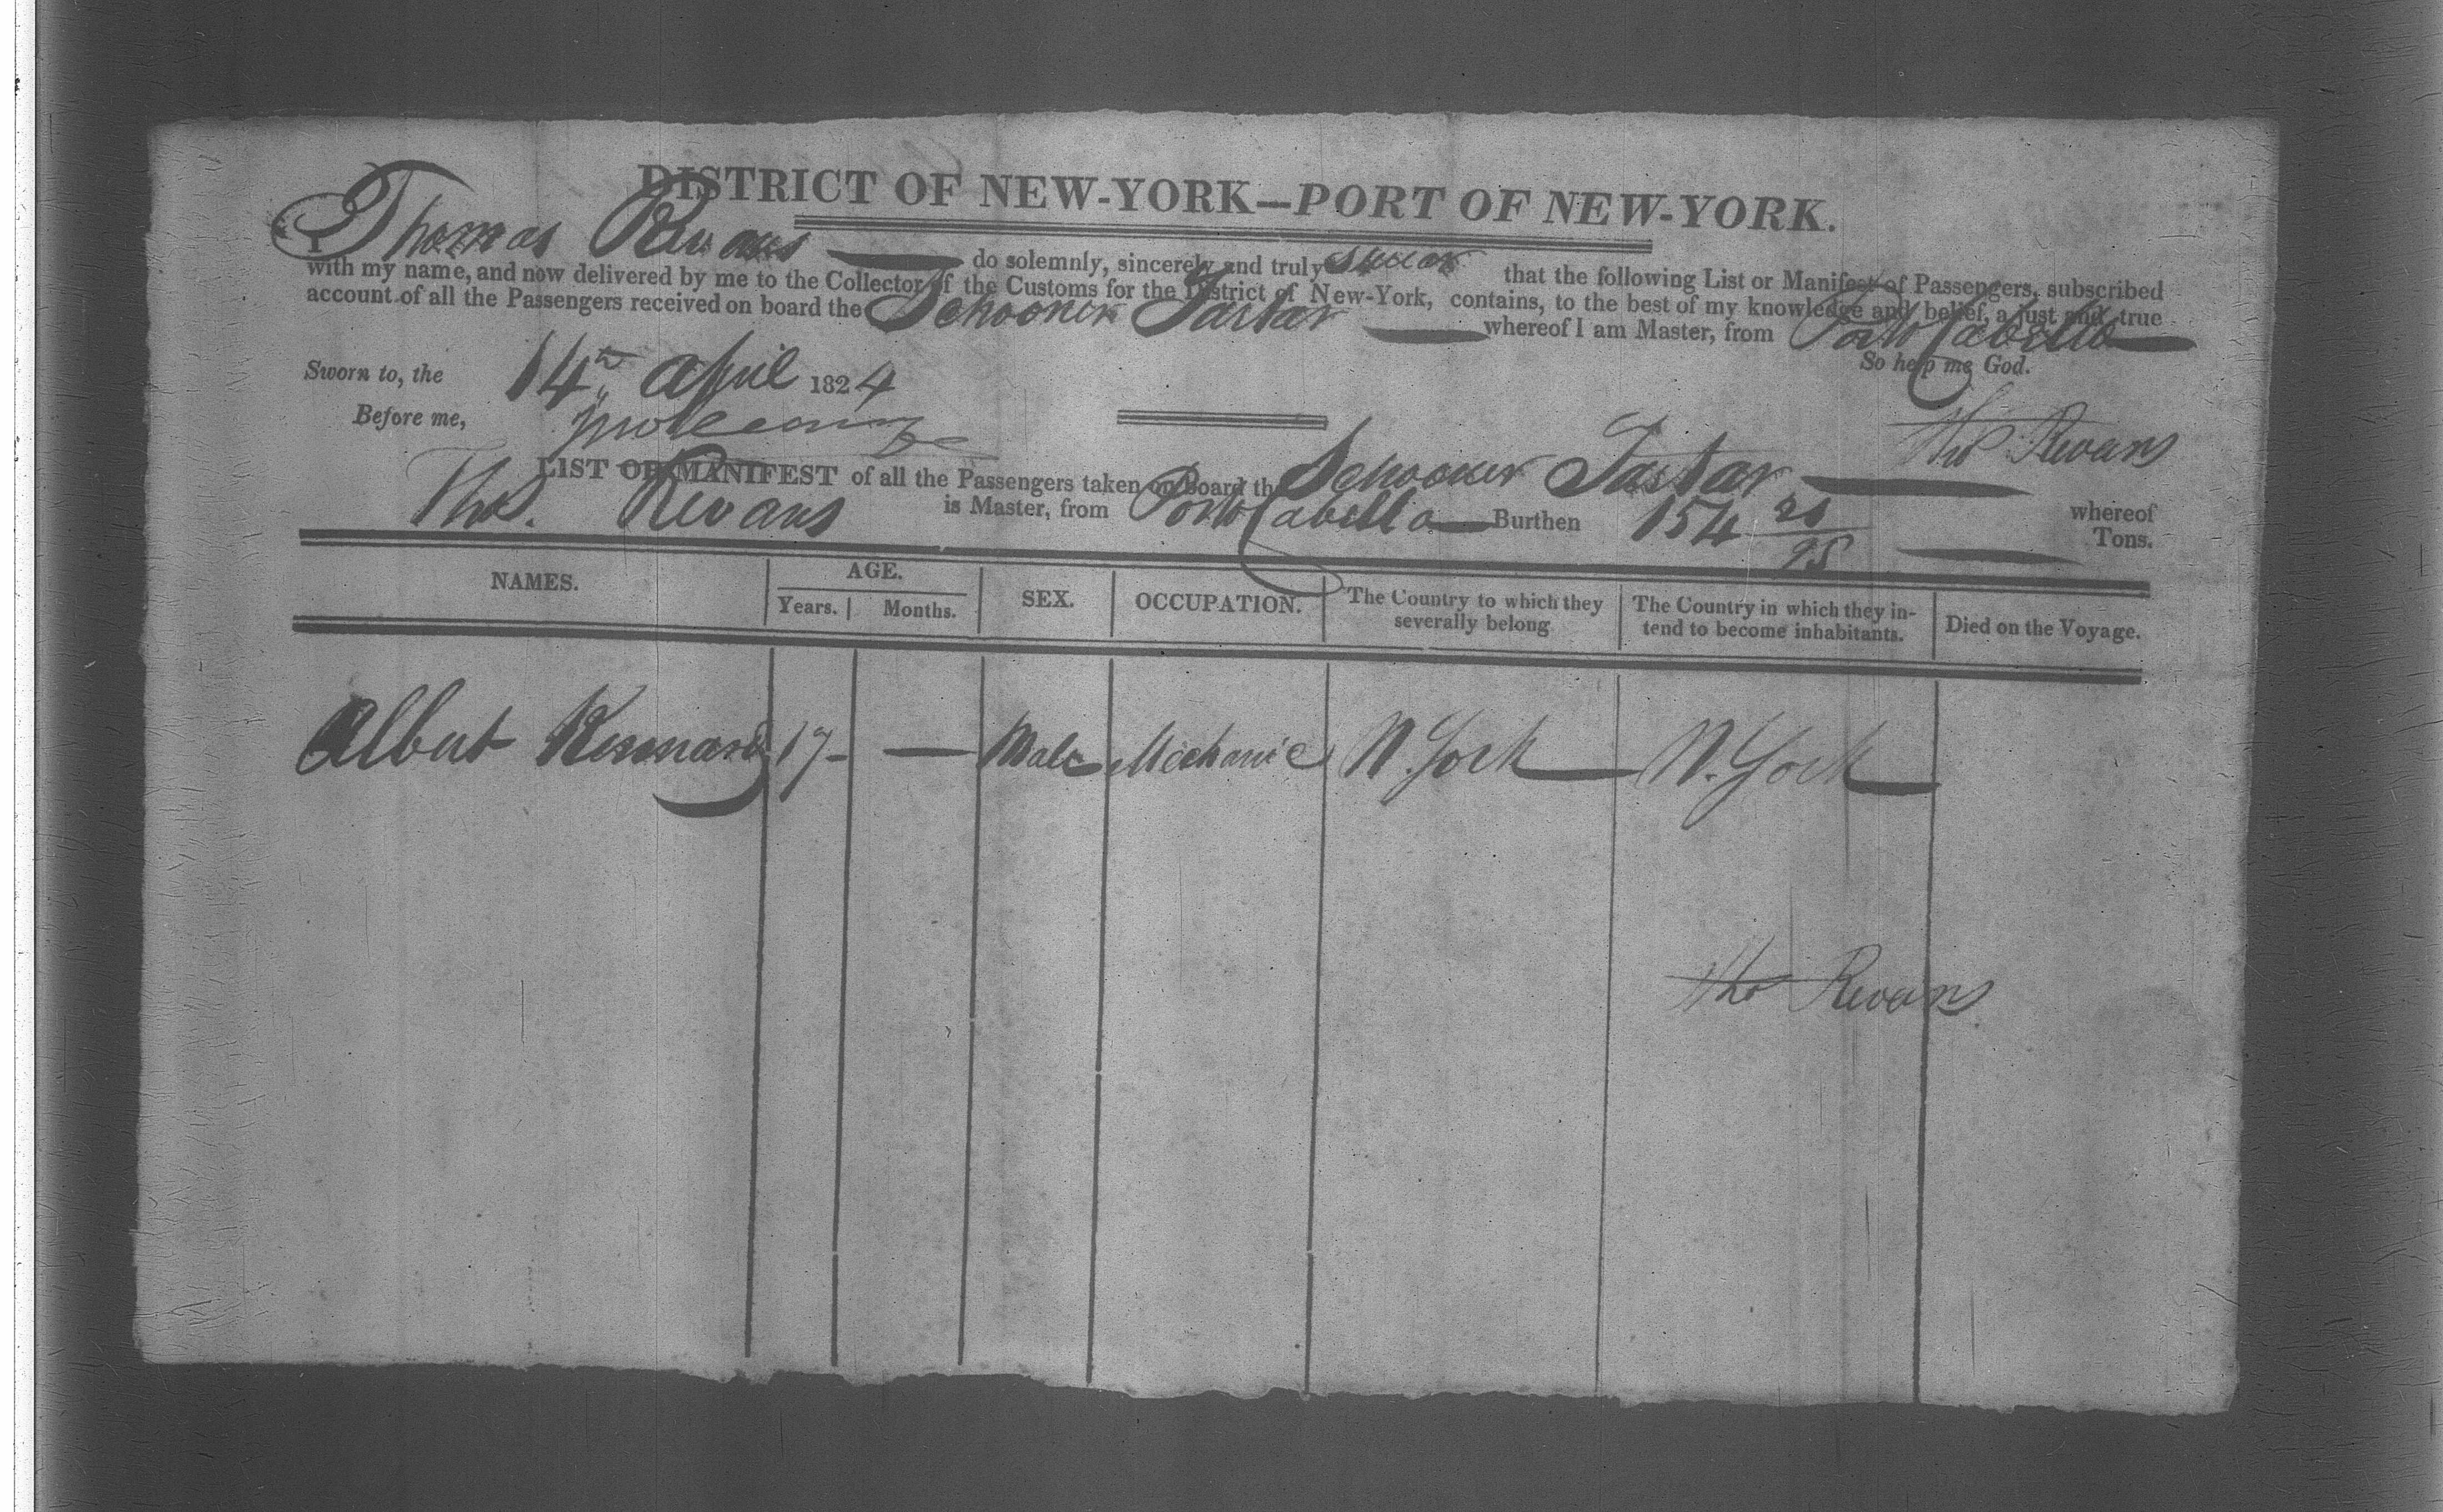 DISTRICT OF NEW-YORK—PORT OF NEW-YORK.
I Thomas Revans do solemnly, sincerely and truly swear that the following List or Manifest of Passengers, subscribed
with my name, and now delivered by me to the Collector of the Customs for the District of New-York, contains, to the best of my knowledge and belief, a just and true
account of all the Passengers received on board the Schooner Tartar whereof I am Master, from Porto Cabello
So help me God.
Sworn to, the 14th April 1824
Before me,
Tho Revans
LIST OR MANIFEST of all the Passengers taken on board the Schooner Tartar whereof
Thos. Revans is Master, from Porto Cabello Burthen 154 Tons.
NAMES. AGE. Years. Months. SEX. OCCUPATION. The Country to which they severally belong The Country in which they intend to become inhabitants. Died on the Voyage.
Albert 17 — Male Mechanic N. York N. York
Tho Revans